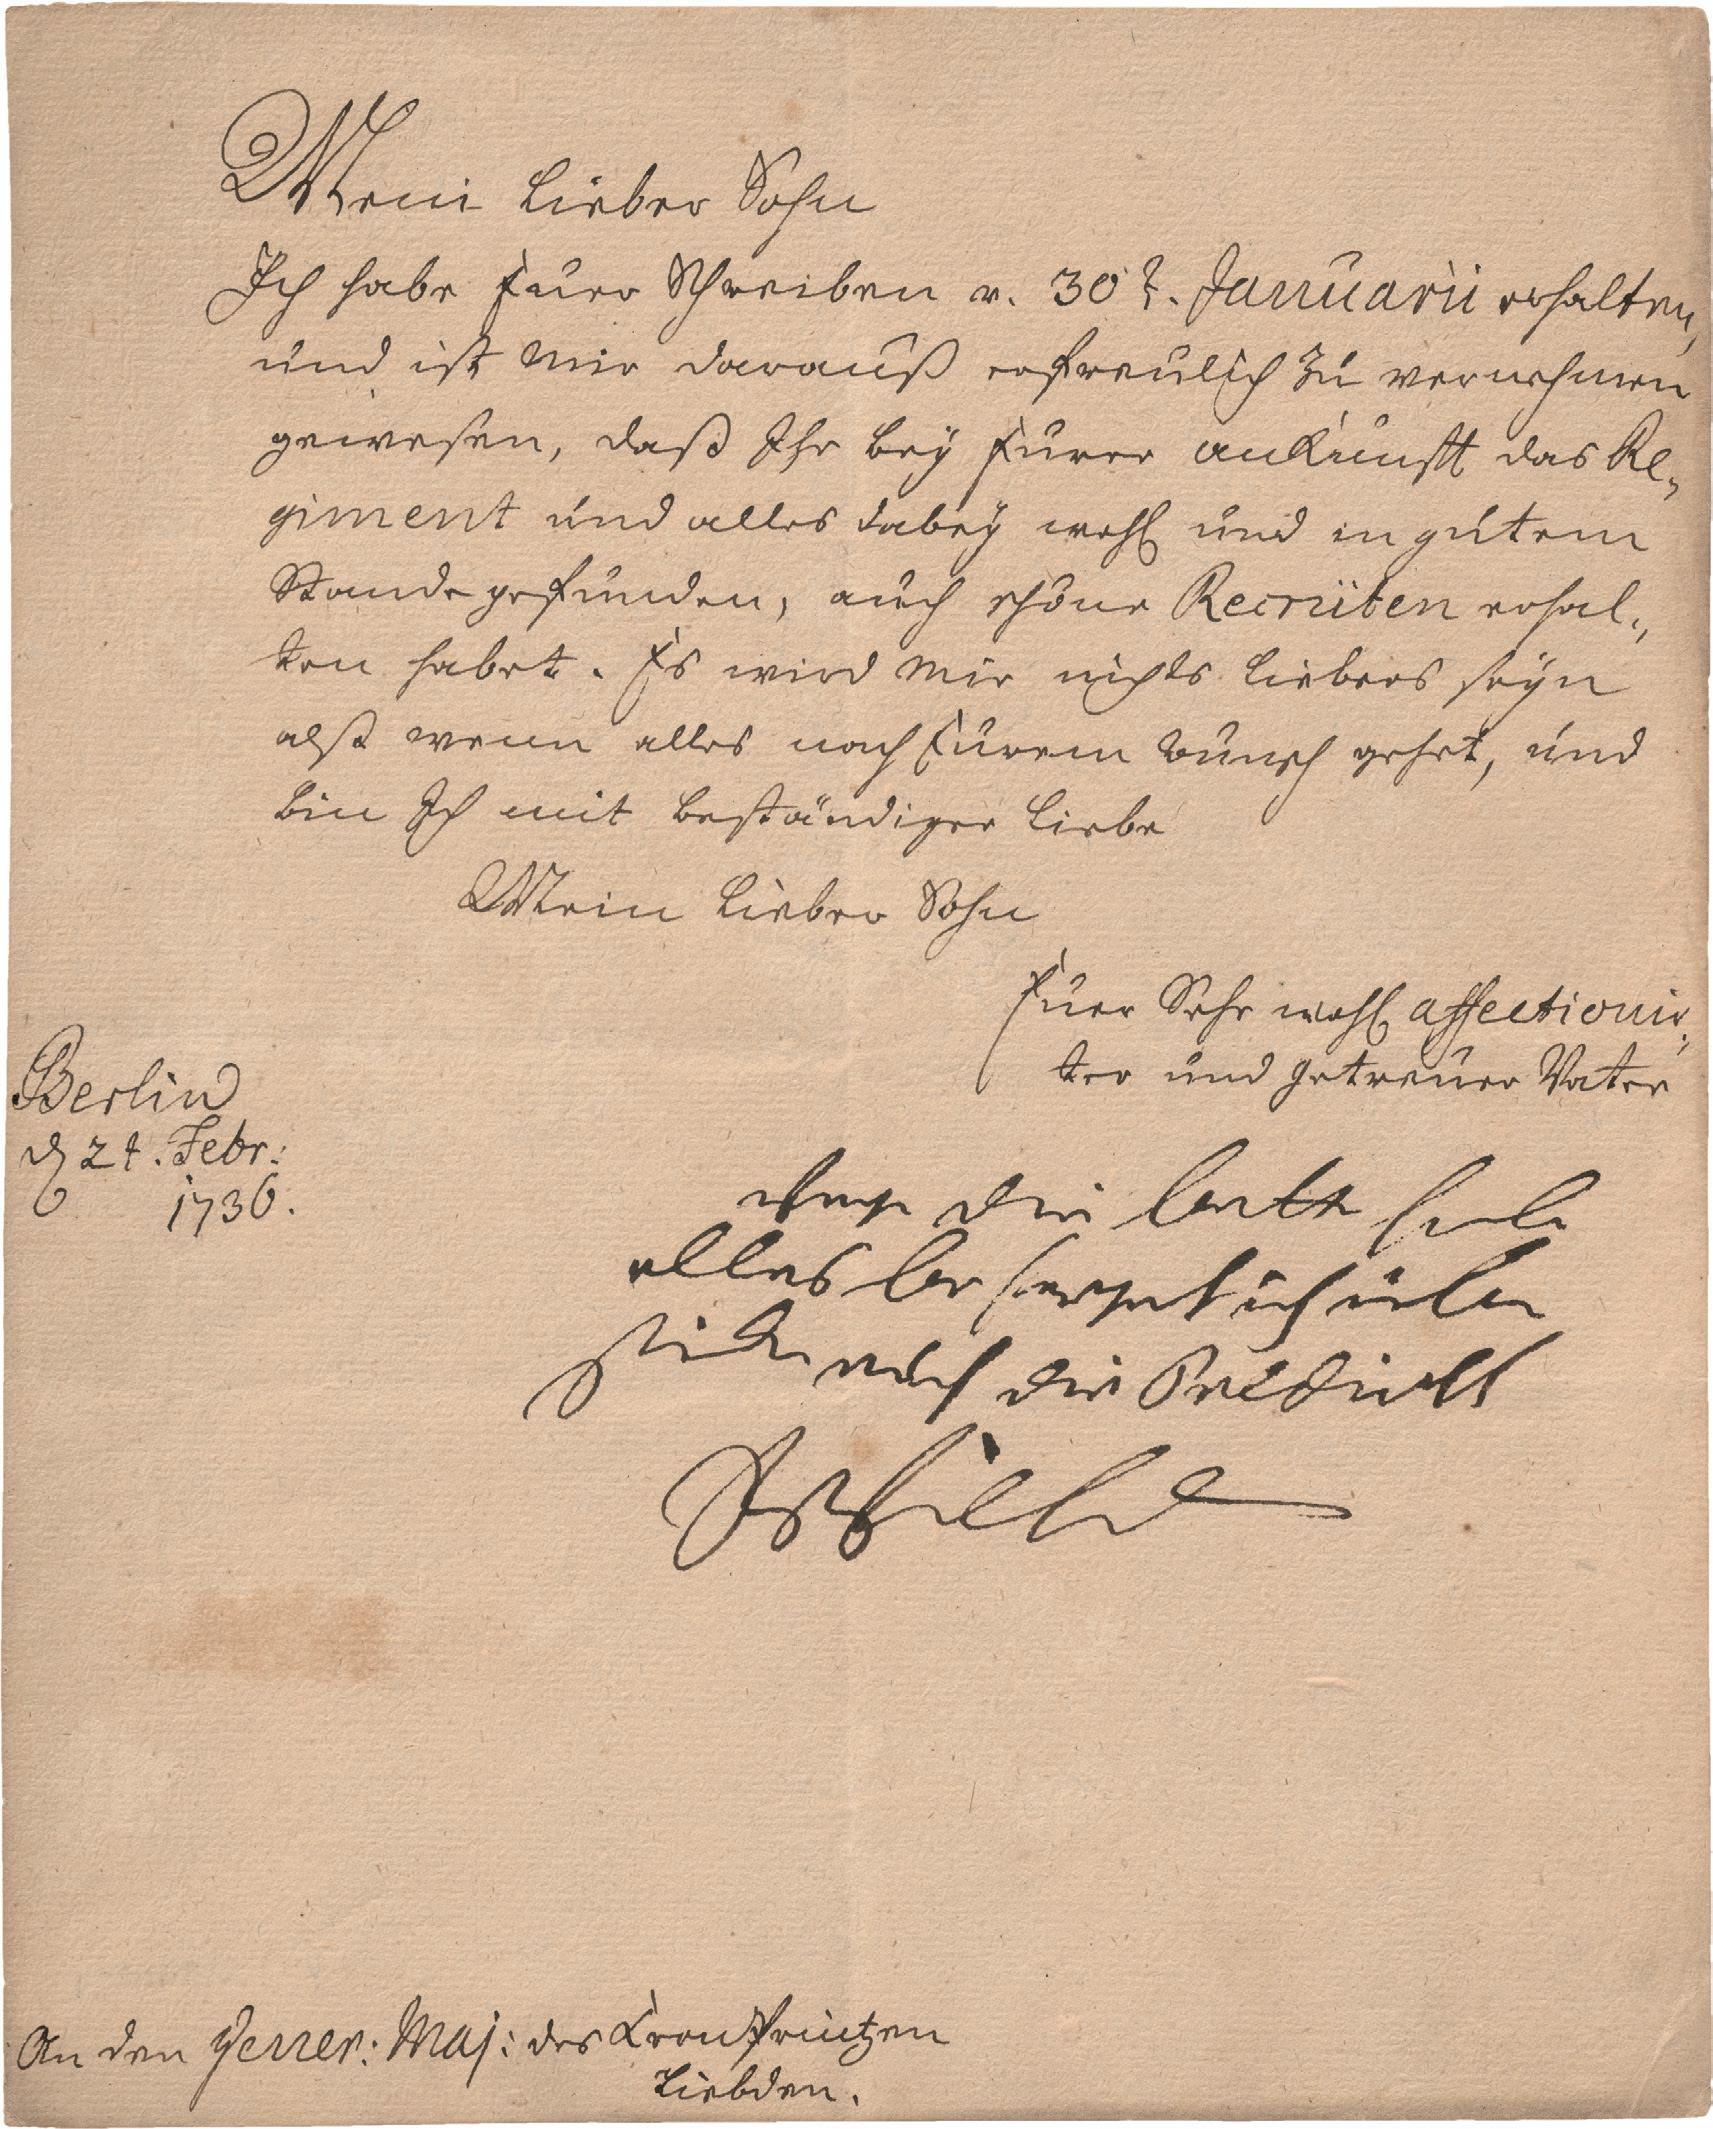 Mein lieber Sohn
Ich habe Euer Schreiben v. 30t. Januarii erhalten,
und ist Mir darauß erfreulich zu vernehmen
gewesen, daß Ihr bey Eurer ankunfft das Re„
giment und alles dabey wohl und in gutem
Stande gefunden, auch schöne Recruten erhal„
ten habet. Es wird Mir nichts liebers seyn
alß wenn alles nach Eurem Wunsch gehet, und
bin Ich mit beständiger Liebe
Mein lieber Sohn
Euer Sehr wohl affectionir„
ter und getreuer Vater
Berlin
d 2t. Febr:
1736.
die
alles ich
auch die
An den Gener: Maj: des CronPrintzen
Liebden.